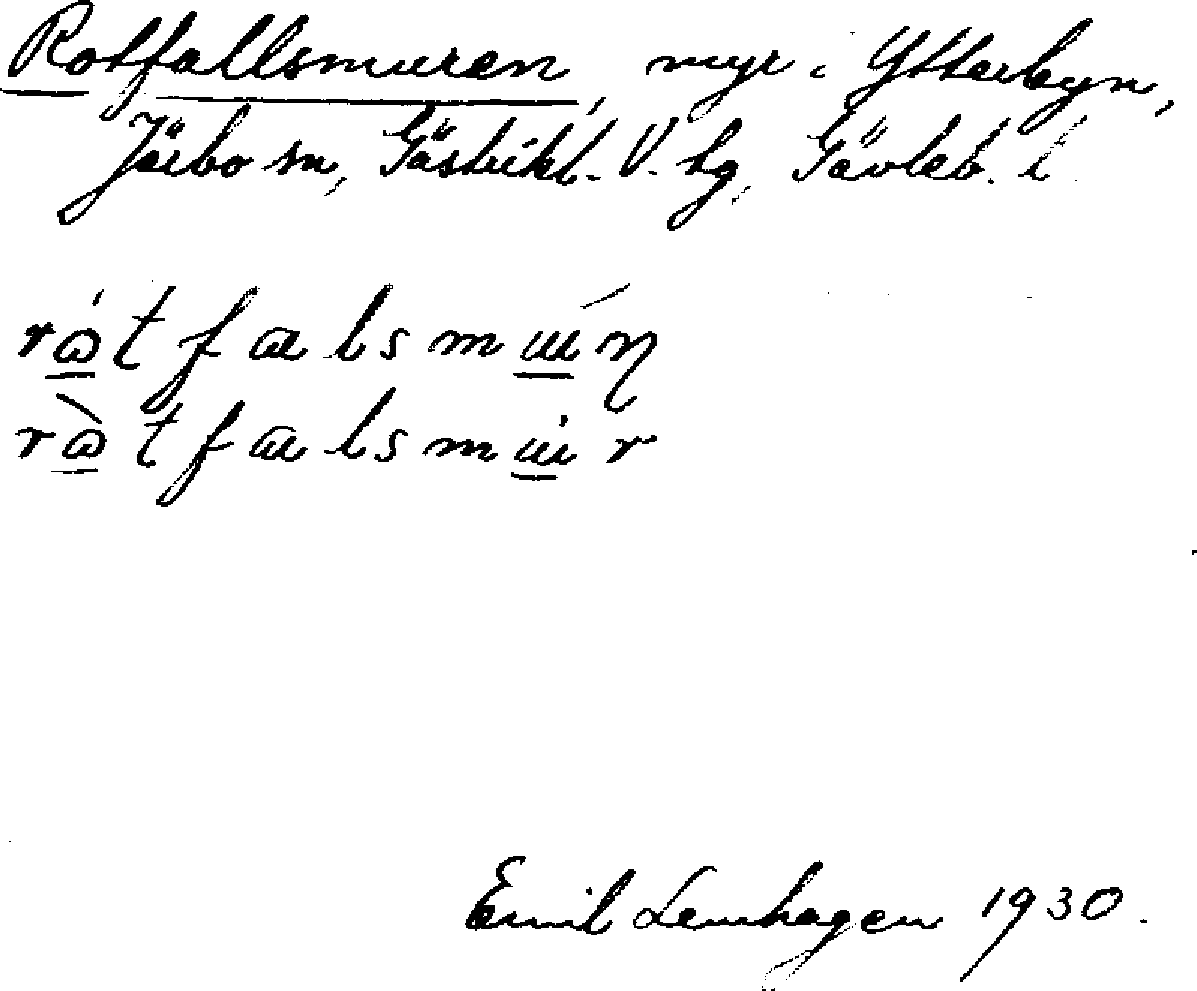 Rotfallsmuren, myr i Ytterbyn,
Järbo sn, Gästrikl. V. hg, Gävleb. l.
rɷ́tfalsmɯ́ŋ
rɷ̀tfalsmɯr
Emil Lenhagen 1930.